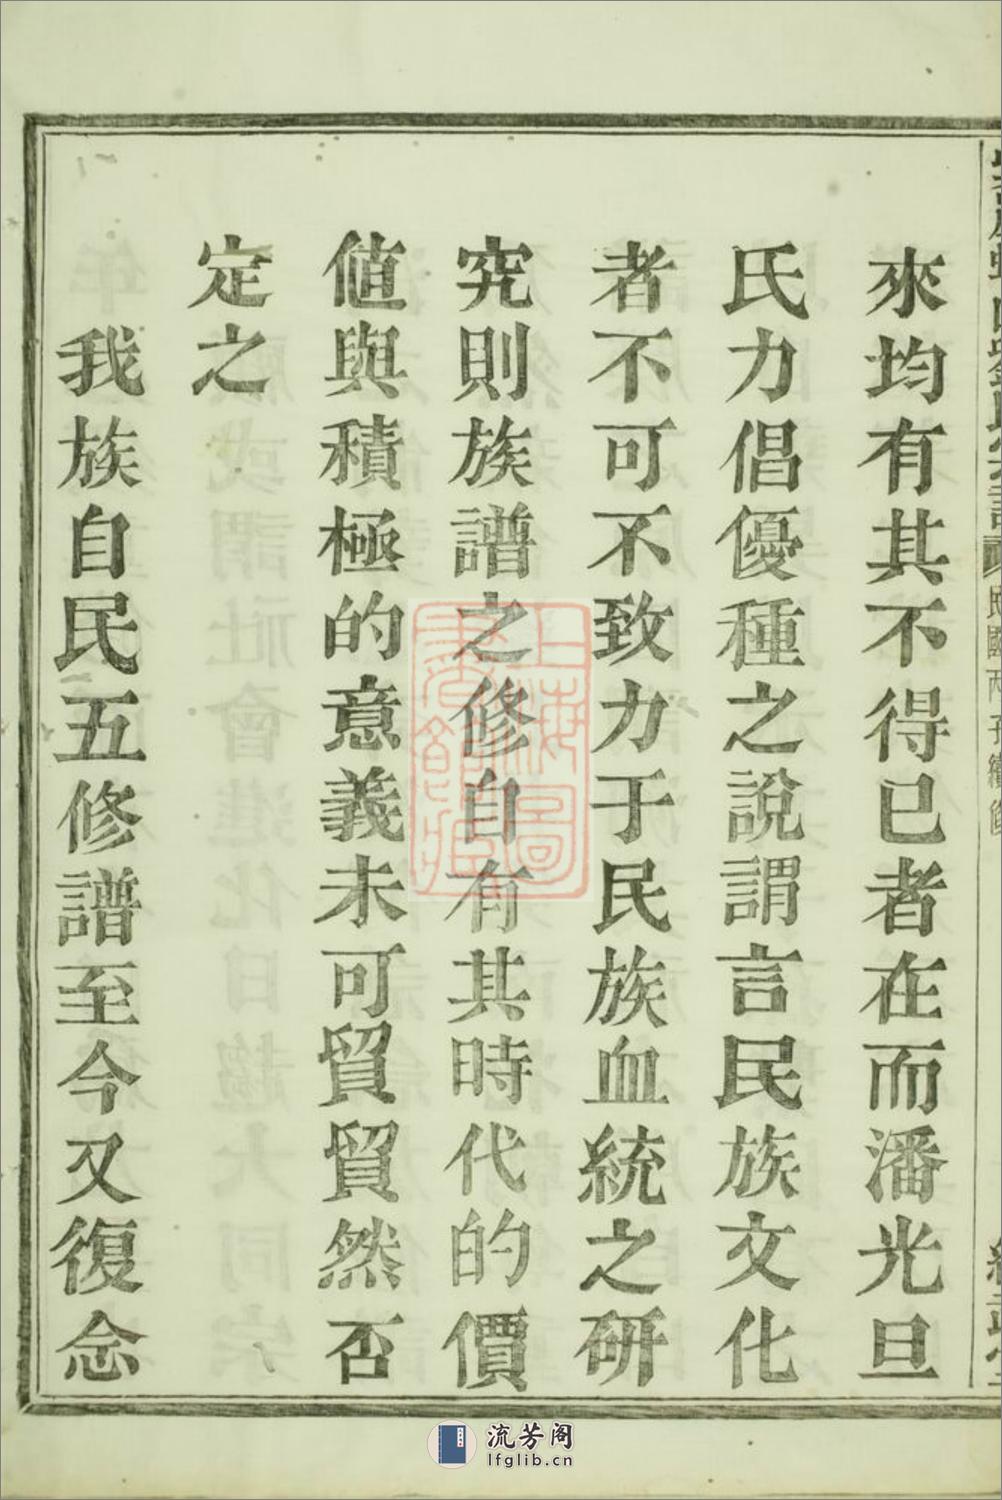 來均有其不得已者在而潘光旦
氏力倡優種之說謂言民族文化
者不可不致力于民族血統之研
究則族譜之修自有其時代的價
値與積極的意義未可貿貿然否
定之
我族自民五修譜至今又復念
上海圖書館藏
流芳阁
lfglib.cn